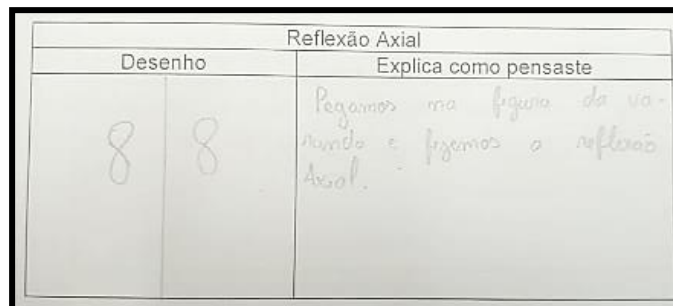 Reflexão Axial
Desenho
Explica como pensaste
8 8
Pegamos na figura da va-
randa e fizemos a reflexão
Axial.